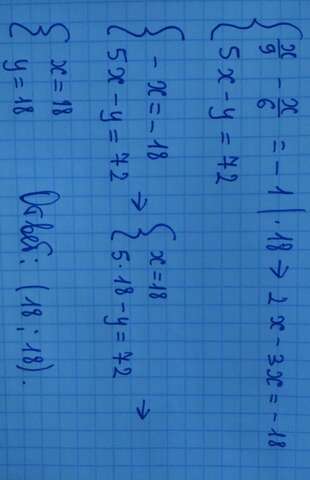 { x/9 - x/6 = -1 | · 18 → 2x - 3x = -18
5x - y = 72
{ -x = -18
5x - y = 72 → { x = 18
5 · 18 - y = 72 →
{ x = 18
y = 18 Ответ: (18 ; 18).